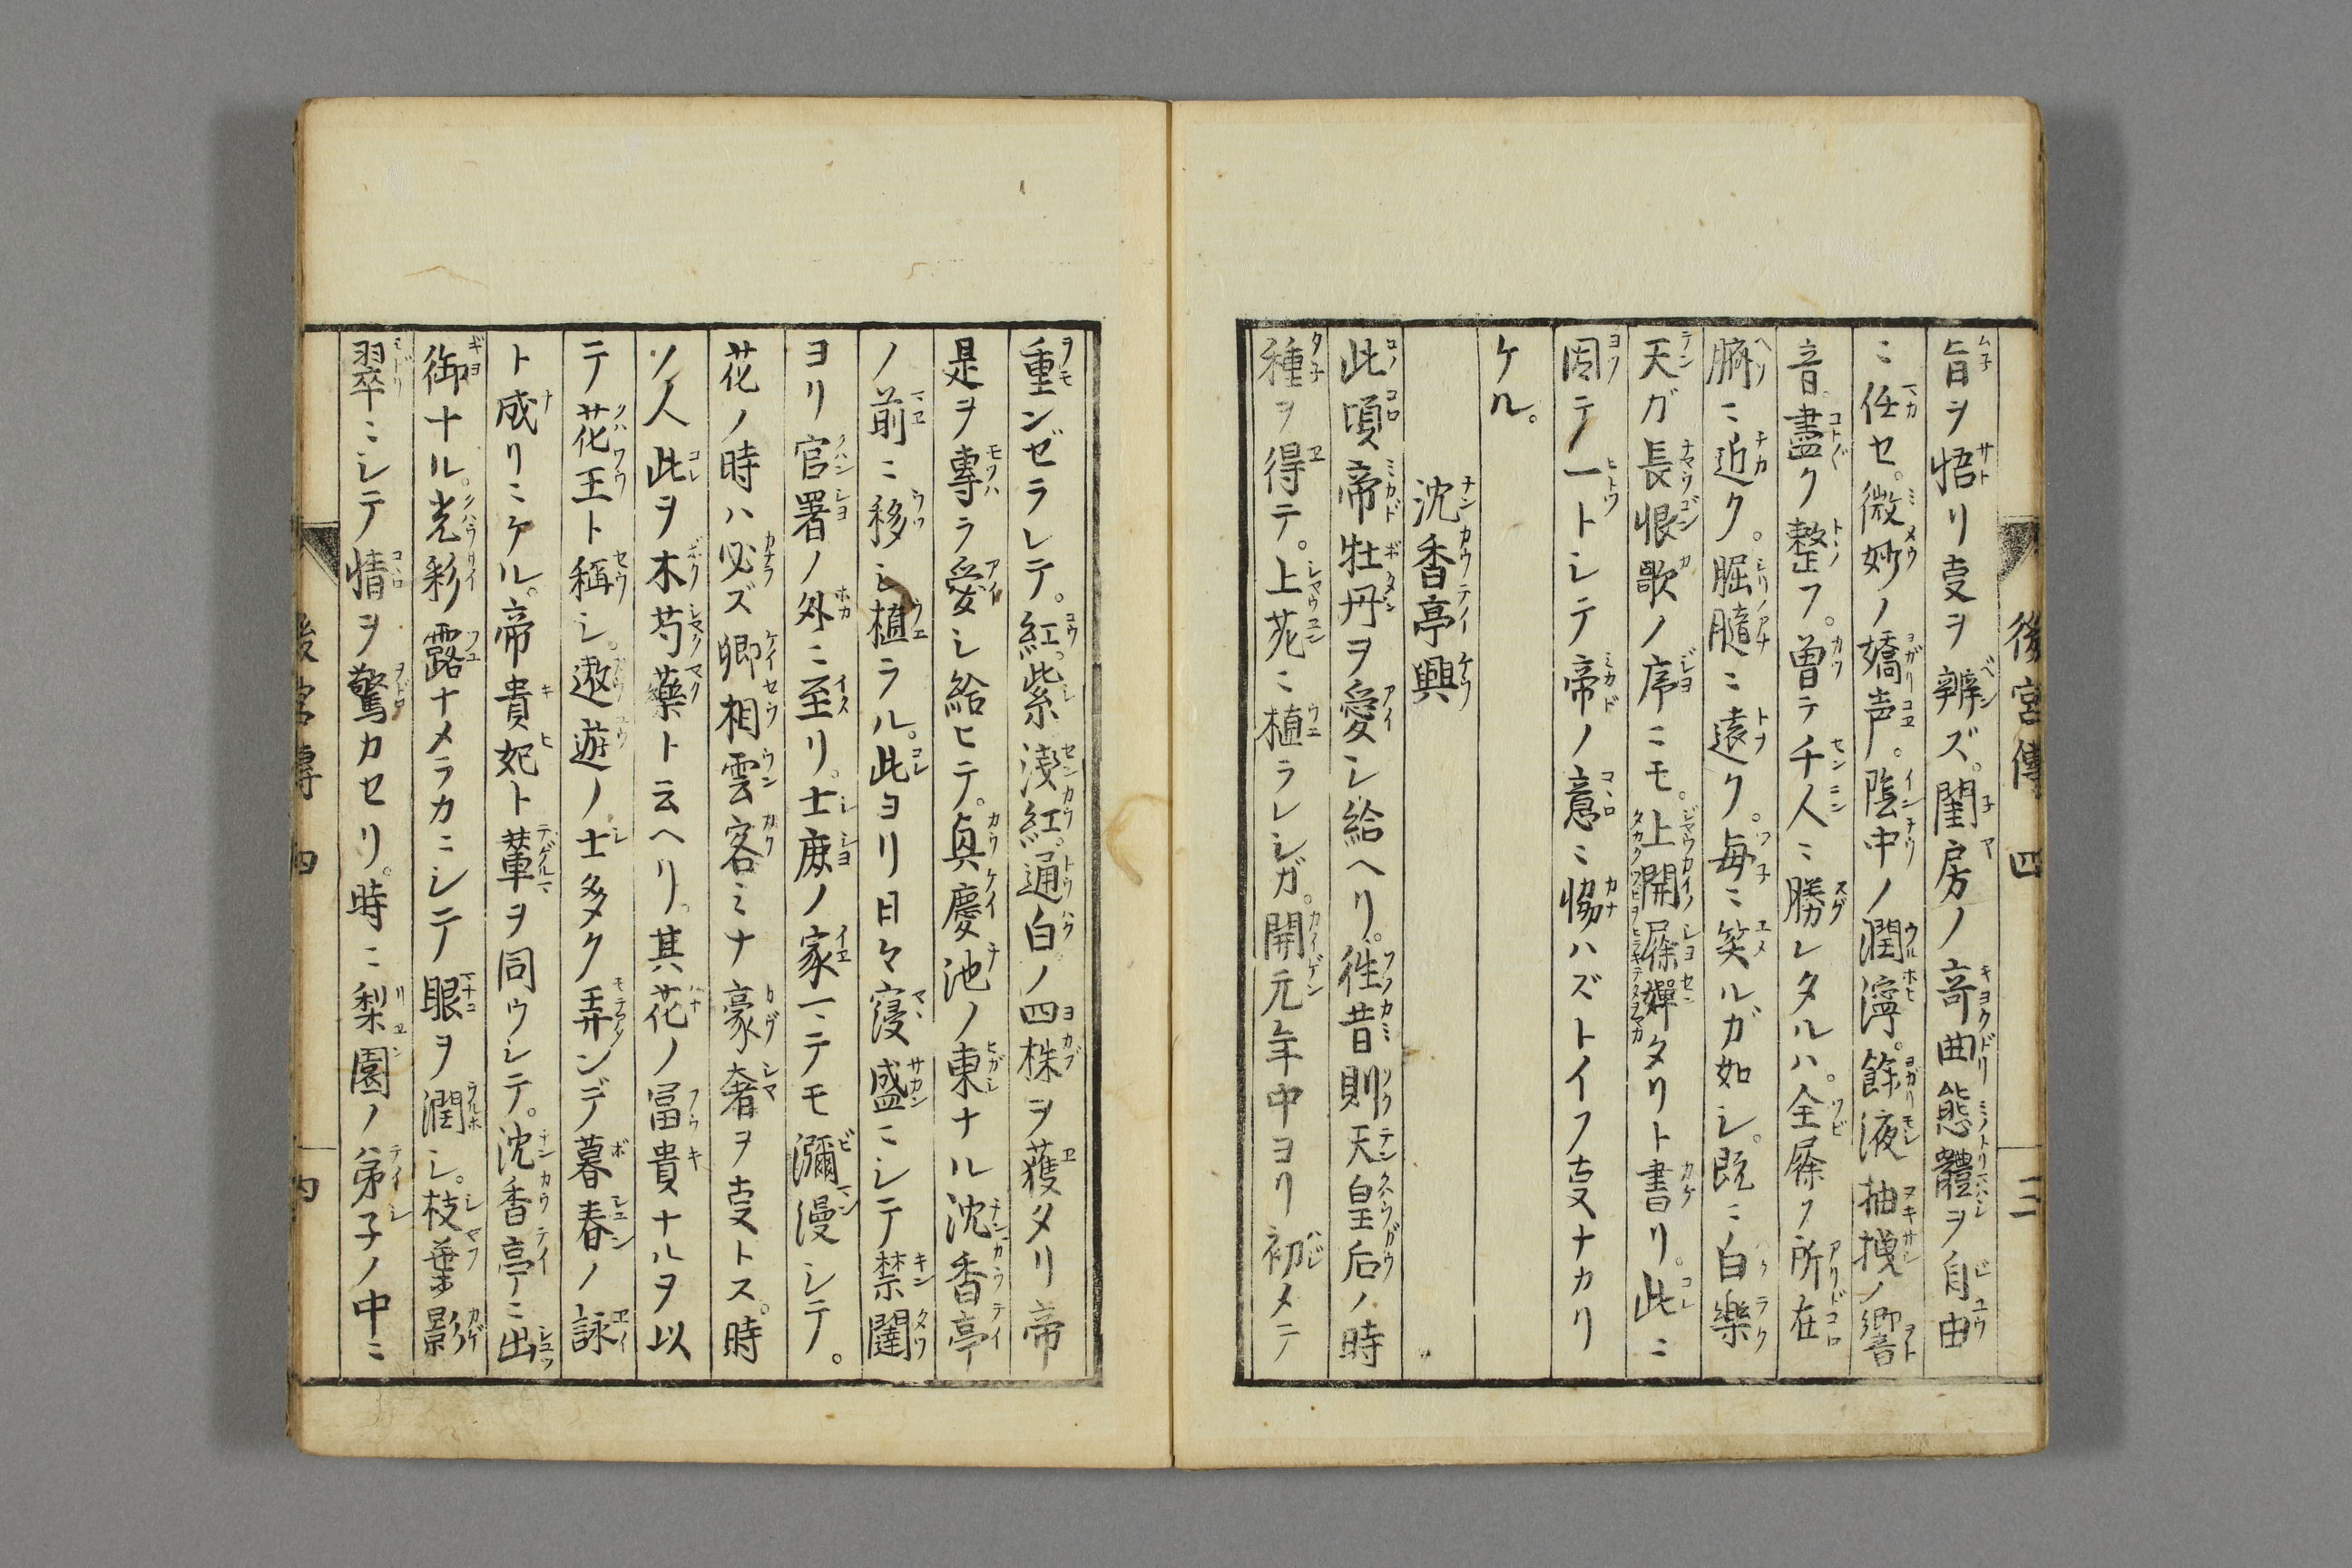 後宮傳 四 三
旨ヲ悟リ㕝ヲ辨ズ。閨房ノ竒曲態體ヲ自由
ニ任セ。微妙ノ嬌声。陰中ノ潤濘。餘液抽拽ノ響
音。盡ク整フ。曽テ千人ニ勝レタルハ。全屘ノ所在
臍ニ近ク。𡱝髄ニ遠ク。毎ニ笑ルガ如シ。既ニ白樂
天ガ長恨歌ノ序ニモ。上開屘嬋タリト書リ。此ニ
因テノ一トシテ帝ノ意ニ恊ハズトイフ㕝ナカリ
ケル。
沈香亭興
此頃帝牡丹ヲ愛シ給ヘリ。徃昔則天皇后ノ時
種ヲ得テ。上苑ニ植ラレシガ。開元年中ヨリ初メテ
重ンゼラレテ。紅。紫。淺紅。通白ノ四株ヲ獲タリ帝
是ヲ專ラ愛シ給ヒテ。真慶池ノ東ナル沈香亭
ノ前ニ移シ植ラル。此ヨリ日々寖盛ニシテ禁闥
ヨリ官署ノ外ニ至リ。士庻ノ家ニテモ瀰漫シテ。
花ノ時ハ必ズ卿相雲客ミナ豪奢ヲ㕝トス。時
ノ人此ヲ木芍藥ト云ヘリ。其花ノ冨貴ナルヲ以
テ花王ト稱シ。遨遊ノ士多ク弄ンデ暮春ノ詠
ト成リニケル。帝貴妃ト輦ヲ同ウシテ。沈香亭ニ出
御ナル。光彩露ナメラカニシテ眼ヲ潤シ。枝葉影
翠ニシテ情ヲ驚カセリ。時ニ梨園ノ弟子ノ中ニ
後宮傳 四